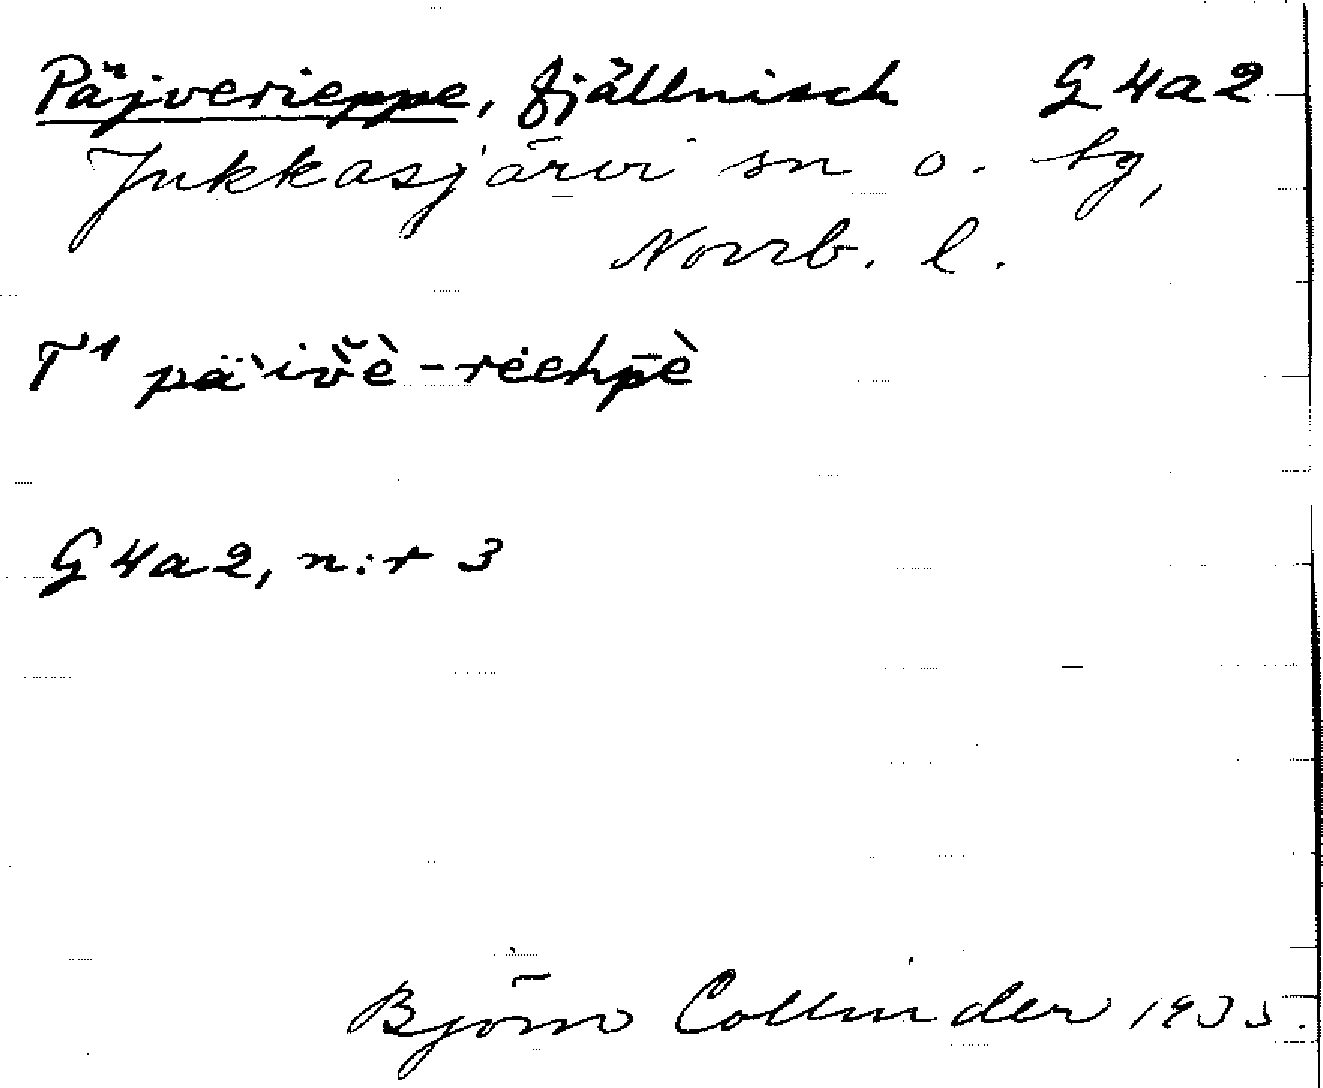 Päjverieppe, fjällnisch G 4a2
Jukkasjärvi sn o. tg,
Norrb. l.
T¹ pä'iv̆è - rèehpè
G 4a2, n:r 3
Björn Collinder 1935.